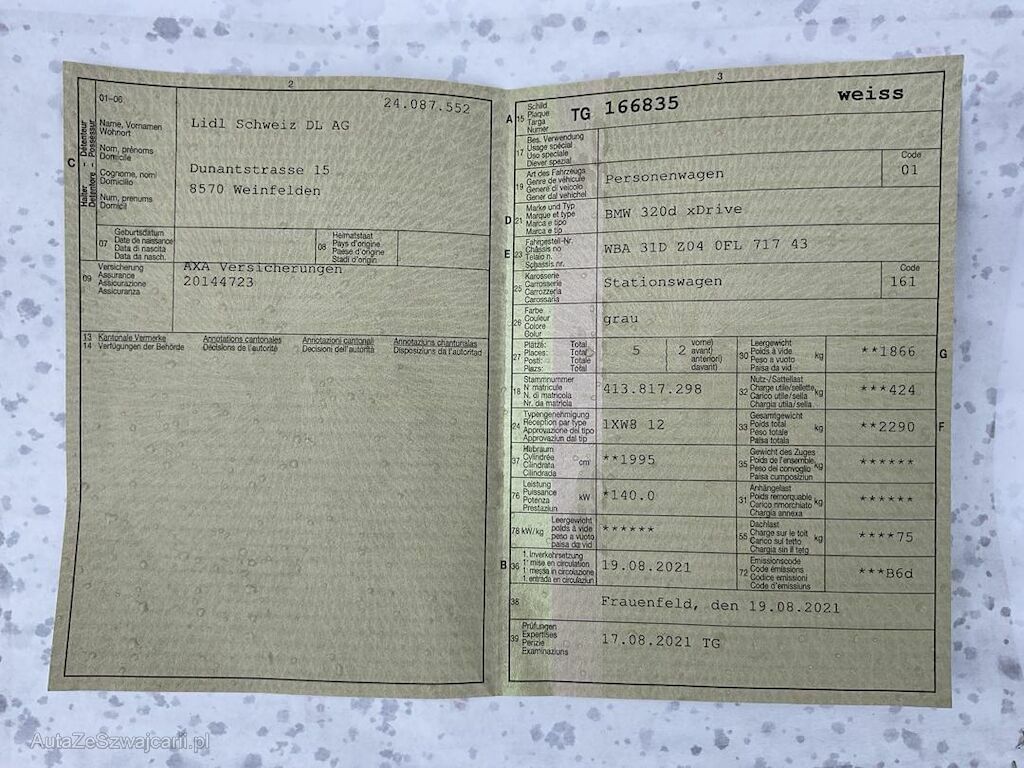 2
01–06
24.087.552
Halter – Détenteur
Detentore – Possessur
C
Name, Vornamen
Wohnort
Nom, prénoms
Domicile
Cognome, nomi
Domicilio
Num, prenums
Domicil
Lidl Schweiz DL AG
Dunantstrasse 15
8570 Weinfelden
07
Geburtsdatum
Date de naissance
Data di nascita
Data da nasch.
08
Heimatstaat
Pays d'origine
Paese d'origine
Stadi d'origin
09
Versicherung
Assurance
Assicurazione
Assicuranza
AXA Versicherungen
20144723
13 Kantonale Vermerke Annotations cantonales Annotazioni cantonali Annotaziuns chantunalas
14 Verfügungen der Behörde Décisions de l'autorité Decisioni dell'autorità Disposiziuns da l'autoritad
3
A 15
Schild
Plaque
Targa
Numer
TG 166835
weiss
17
Bes. Verwendung
Usage spécial
Uso speciale
Diever spezial
19
Art des Fahrzeugs
Genre de véhicule
Genere di veicolo
Gener dal vehichel
Personenwagen
Code
01
D 21
Marke und Typ
Marque et type
Marca e tipo
Marca e tip
BMW 320d xDrive
E 23
Fahrgestell-Nr.
Châssis no
Telaio n.
Schassis nr.
WBA 31D Z04 0FL 717 43
25
Karosserie
Carrosserie
Carrozzeria
Carossaria
Stationswagen
Code
161
26
Farbe
Couleur
Colore
Colur
grau
27
Plätze: Total
Places: Total
Posti: Totale
Plazs: Total
5
2
vorne)
avant)
anteriori)
davant)
30
Leergewicht
Poids à vide
Peso a vuoto
Paisa da vid
kg
**1866
G
18
Stammnummer
N° matricule
N. di matricola
Nr. da matricla
413.817.298
32
Nutz-/Sattellast
Charge utile/sellette
Carico utile/sella
Chargia utila/sella
kg
***424
24
Typengenehmigung
Réception par type
Approvazione del tipo
Approvaziun dal tip
1XW8 12
33
Gesamtgewicht
Poids total
Peso totale
Paisa totala
kg
**2290
F
37
Hubraum
Cylindrée
Cilindrata
Cilindrada
cm³
**1995
35
Gewicht des Zuges
Poids de l'ensemble
Peso del convoglio
Paisa cumposiziun
kg
******
76
Leistung
Puissance
Potenza
Prestaziun
kW
*140.0
31
Anhängelast
Poids remorquable
Carico rimorchiato
Chargia annexa
kg
******
78 kW/kg
Leergewicht
poids à vide
peso a vuoto
paisa da vid
******
55
Dachlast
Charge sur le toit
Carico sul tetto
Chargia sin il tetg
kg
****75
B 36
1. Inverkehrsetzung
1re mise en circulation
1. messa in circolazione
1. entrada en circulaziun
19.08.2021
72
Emissionscode
Code émissions
Codice emissioni
Code d'emissiuns
***B6d
38
Frauenfeld, den 19.08.2021
39
Prüfungen
Expertises
Perizie
Examinaziuns
17.08.2021 TG
AutaZeSzwajcarii.pl